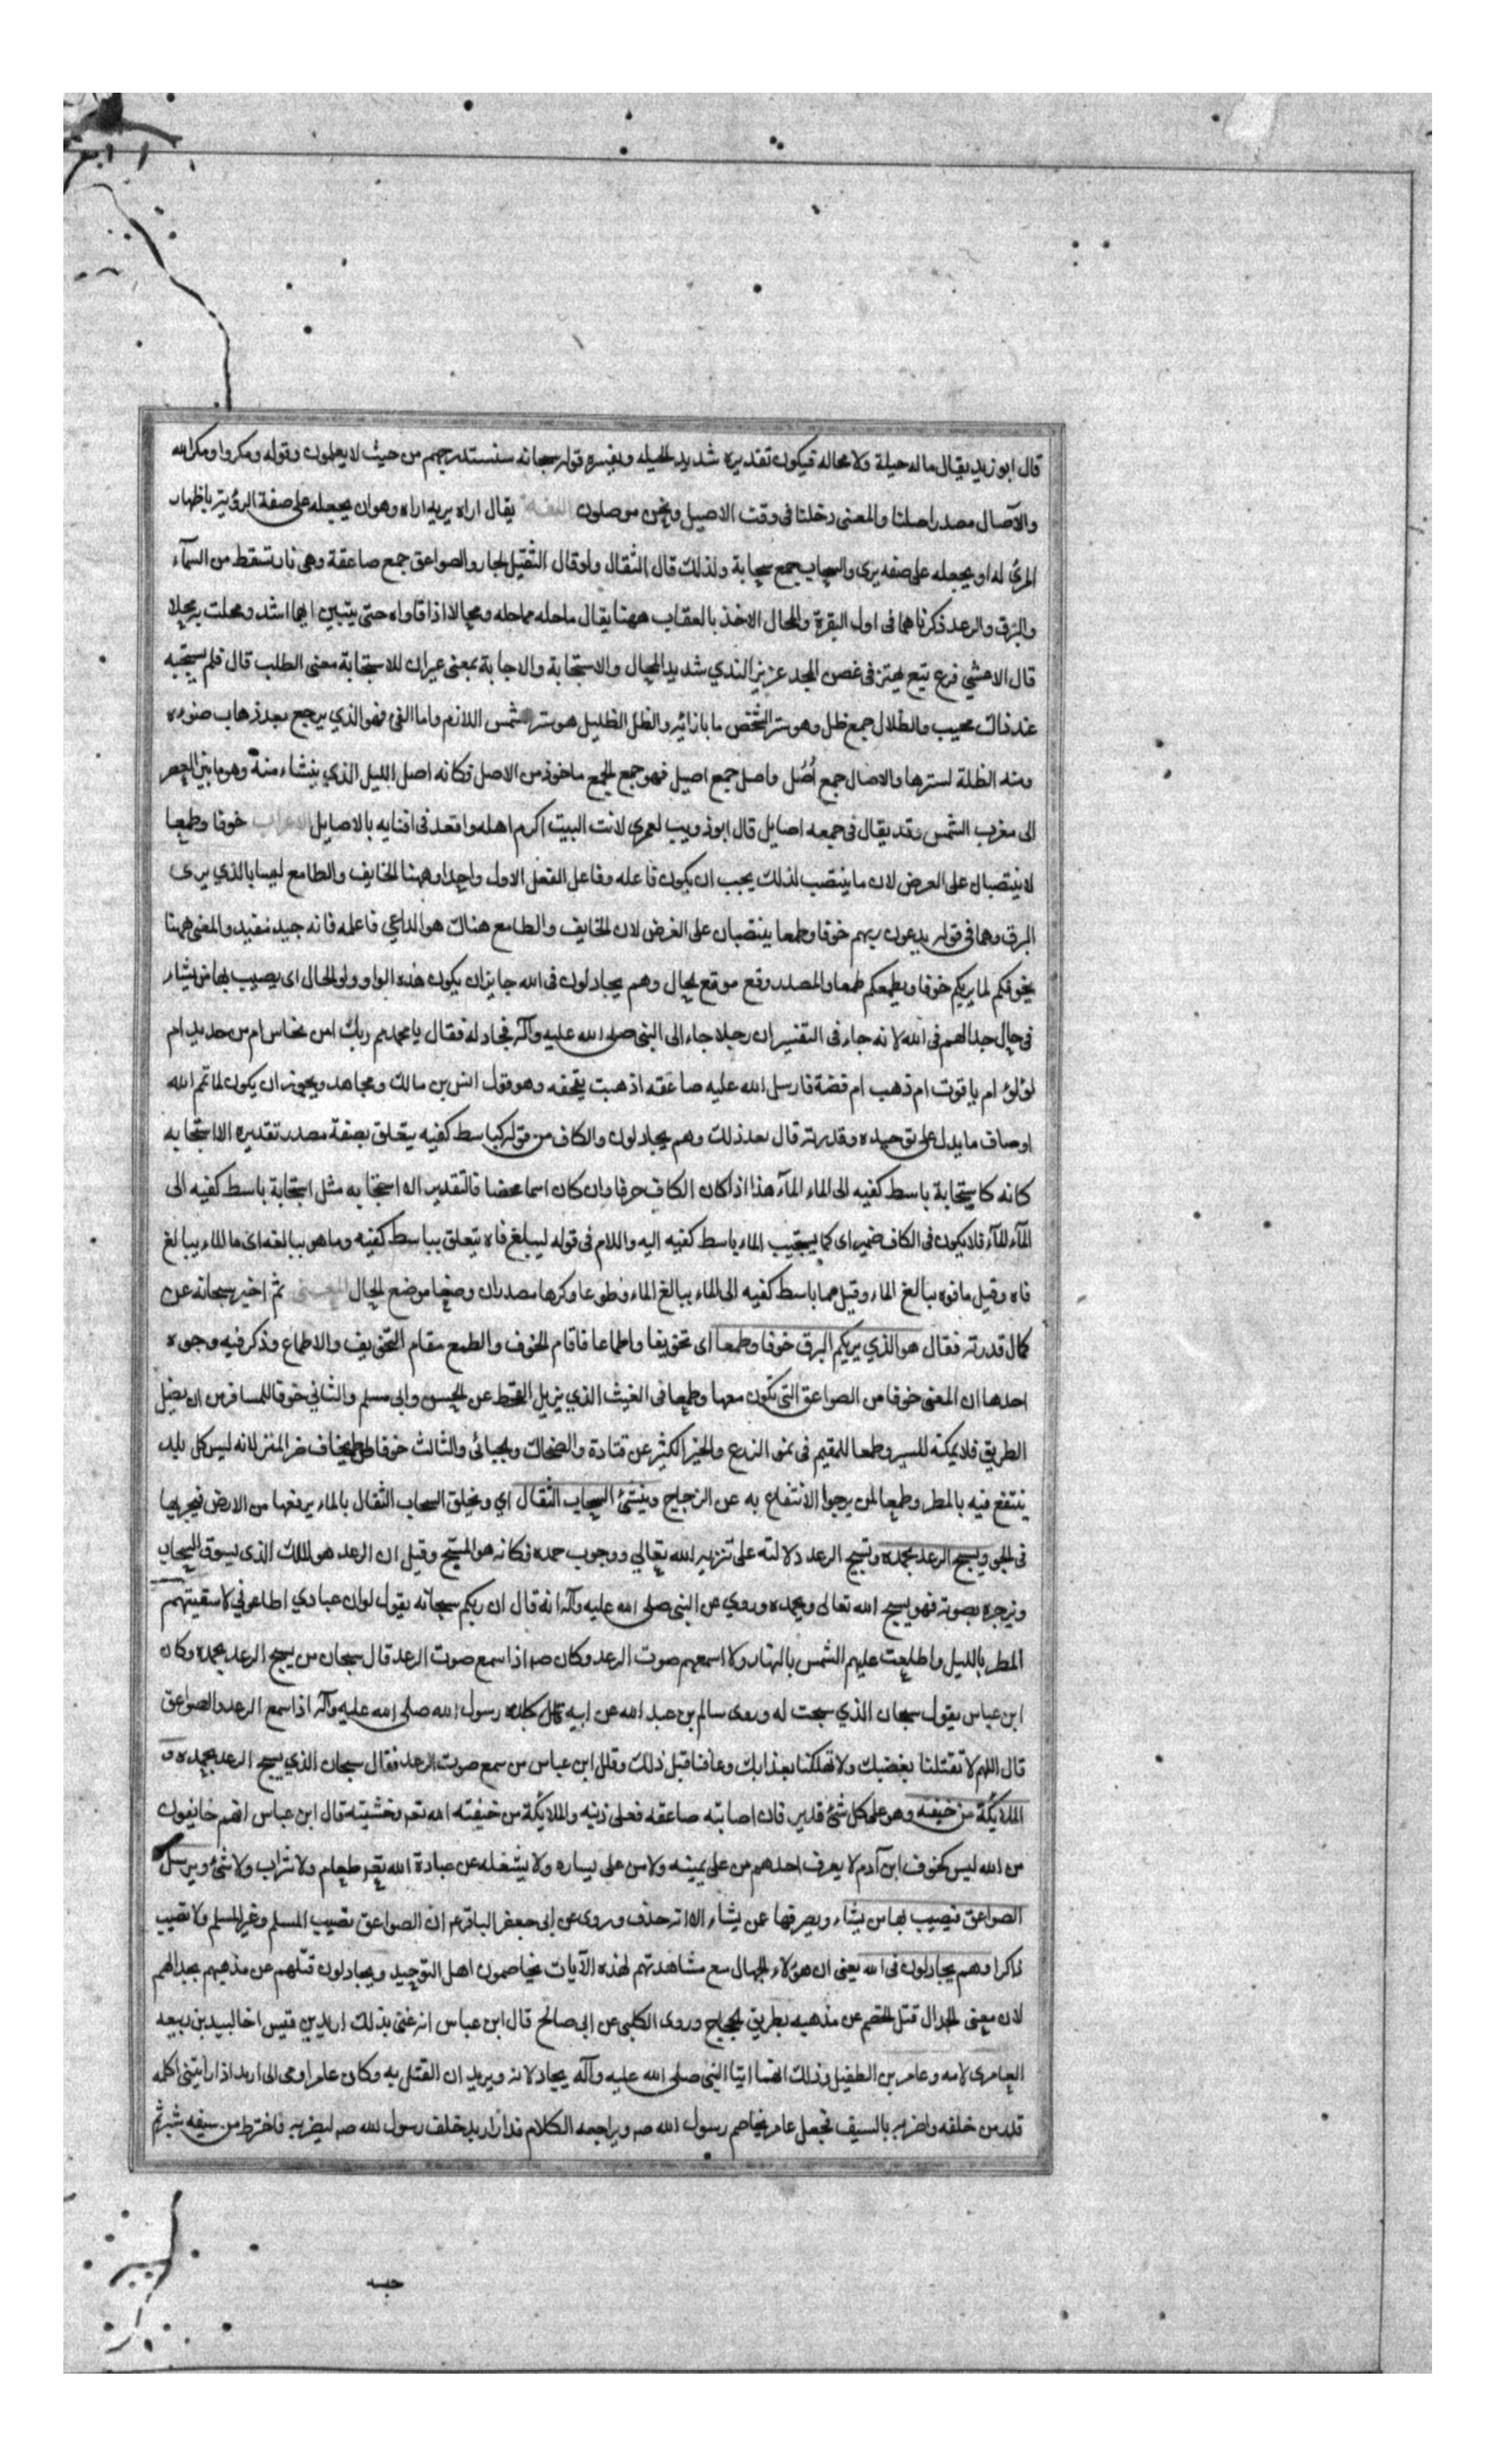 قال ابو زيد يقال ما له حيلة ولا محاله فيكون تقديره شديد الحيله ويفسره قوله سبحانه سنستدرجهم من حيث لا يعلمون وقوله ومكروا ومكر الله
والآصال مصدر اصلنا والمعنى دخلنا فى وقت الاصيل ونحن موصلون اللغة يقال اراه يريه اراه وهو ان يجعله على صفة الرؤية باظهار
المرئ له او يجعله على صفه يرى والسحاب جمع سحابة ولذلك قال الثقال ولو قال الثقيل لجاز والصواعق جمع صاعقة وهى نار تسقط من السمآء
والبرق والرعد ذكرناهما فى اول البقرة والمحال الاخذ بالعقاب ههنا يقال ماحله مماحله ومحالا اذا قاواه حتى يتبين ايهما اشد ومحلت به محلا
قال الاعشي فرع نبع يهتز فى غصن المجد عزيز الندي شديد المحال والاستجابة والاجابة بمعنى غير ان للاستجابة معنى الطلب قال فلم يستجبه
عند ذاك مجيب والظلال جمع ظل وهو ستر الشخص ما بازائه والظل الظليل هو ستر الشمس اللازم واما الفئ فهو الذي يرجع بعد ذهاب ضوءه
ومنه الظلة لسترها والاصال جمع أُصُل واصل جمع اصيل فهو جمع الجمع ماخوذ من الاصل فكانه اصل الليل الذي ينشاء منه وهو ما بين العصر
الى مغرب الشمس وقد يقال فى جمعه اصايل قال ابو ذويب لعمري لانت البيت اكرم اهله واقعد فى افنايه بالاصايل الاعراب خوفا وطمعا
لا ينتصبان على الغرض لان ما ينتصب لذلك يجب ان يكون فاعله وفاعل الفعل الاول واحدا وههنا الخايف والطامع ليسا بالذي يرى
البرق وهما فى قوله يدعون ربهم خوفا وطمعا ينتصبان على الغرض لان الخايف والطامع هناك هو الداعي فاعله فانه جيد مفيد والمعنى ههنا
يخوفكم لما يريكم خوفا ويطمعكم طمعا والمصدر وقع موقع الحال وهم يجادلون فى الله جايز ان يكون هذه الواو واو الحال اى يصيب بها من يشاء
فى حال جدالهم فى الله لانه جاء فى التفسير ان رجلا جاء الى النبى صلى الله عليه وآله فجادله فقال يا محمد مم ربك امن نحاس ام من حديد ام
لؤلؤ ام ياقوت ام ذهب ام فضة فارسل الله عليه صاعقه اذهبت بقحفه وهو قول انس بن مالك ومجاهد ويجوز ان يكون لما تمم الله
اوصاف ما يدل على توحيده وقدرته قال بعد ذلك وهم يجادلون والكاف من قوله كباسط كفيه يتعلق بصفة مصدر تقديره الا استجابه
كانه كاستجابة باسط كفيه الى الماء المآء هذا اذا كان الكاف حرفا وان كان اسما محضا فالتقدير الا استجابه مثل استجابة باسط كفيه الى
المآء المآء فلا يكون فى الكاف ضمير اى كما يستجيب الماء باسط كفيه اليه واللام فى قوله ليبلغ فاه يتعلق بباسط كفيه وما هو ببالغه اى ما الماء ببالغ
فاه وقيل ما فوه ببالغ الماء وقيل ما باسط كفيه الى الماء ببالغ الماء وطوعا وكرها مصدران وضعا موضع الحال المعنى ثم اخبر سبحانه عن
كمال قدرته فقال هو الذي يريكم البرق خوفا وطمعا اى تخويفا واطماعا فاقام الخوف والطمع مقام التخويف والاطماع وذكر فيه وجوه
احدها ان المعنى خوفا من الصواعق التى تكون معها وطمعا فى الغيث الذي يزيل القحط عن الحسن وابى مسلم والثاني خوفا للمسافر من ان يضل
الطريق فلا يمكنه المسير وطمعا للمقيم فى نمو الزرع والخير الكثير عن قتادة والضحاك والجبائى والثالث خوفا يخاف ضر المطر لانه ليس كل بلد
ينتفع فيه بالمطر وطمعا لمن يرجوا الانتفاع به عن الزجاج وينشئ السحاب الثقال اي ويخلق السحاب الثقال بالماء يرفعها من الارض فيجريها
فى الجو ويسبح الرعد بحمده وتسبيح الرعد دلالته على تنزيه الله تعالي ووجوب حمده فكانه هو المسبح وقيل ان الرعد هو الملك الذى يسوق السحاب
ويزجره بصوته فهو يسبح الله تعالى ويحمده وروي عن النبى صلى الله عليه وآله انه قال ان ربكم سبحانه يقول لو ان عبادي اطاعوني لاسقيتهم
المطر بالليل واطلعت عليهم الشمس بالنهار ولا اسمعهم صوت الرعد وكان ص اذا سمع صوت الرعد قال سبحان من يسبح الرعد بحمده وكان
ابن عباس يقول سبحان الذي سبحت له وروى سالم بن عبد الله عن ابيه قال كان رسول الله صلى الله عليه وآله اذا سمع الرعد والصواعق
قال اللهم لا تقتلنا بغضبك ولا تهلكنا بعذابك وعافنا قبل ذلك وقال ابن عباس من سمع صوت الرعد فقال سبحان الذي يسبح الرعد بحمده و
الملايكة من خيفته وهو على كل شئ قدير فان اصابته صاعقه فعلى ديته والملايكة من خيفته الله تعر وخشيته قال ابن عباس انهم خايفون
من الله ليس كخوف ابن آدم لا يعرف احدهم من على يمينه ولا من على يساره ولا يشغله عن عبادة الله تعر طعام ولا شراب ولا شئ ويرسل
الصواعق فيصيب بها من يشاء ويصرفها عن يشاء الا انه حذف وروى عن ابى جعفر الباقر ع ان الصواعق تصيب المسلم وغير المسلم ولا تصيب
ذاكرا وهم يجادلون فى الله يعنى ان هؤلاء الجهال مع مشاهدتهم لهذه الآيات يخاصمون اهل التوحيد ويجادلون فتلهم عن مذهبهم بجدالهم
لان معنى الجدال فتل الخصم عن مذهبه بطريق الحجاج وروى الكلبى عن ابى صالح قال ابن عباس انه عنى بذلك اربد بن قيس اخا لبيد بن ربيعه
العامرى لامه وعامر بن الطفيل وذلك انهما اتيا النبى صلى الله عليه وآله يجادلانه ويريدان الفتك به وكان عامر اوصى الى اربد اذا رايتنى اكلمه
فدر من خلفه واضربه بالسيف فجعل عامر يخاصم رسول الله ص ويراجعه الكلام فدار اربد خلف رسول الله ص ليضربه فاخترط من سيفه شبرا ثم
حبسه